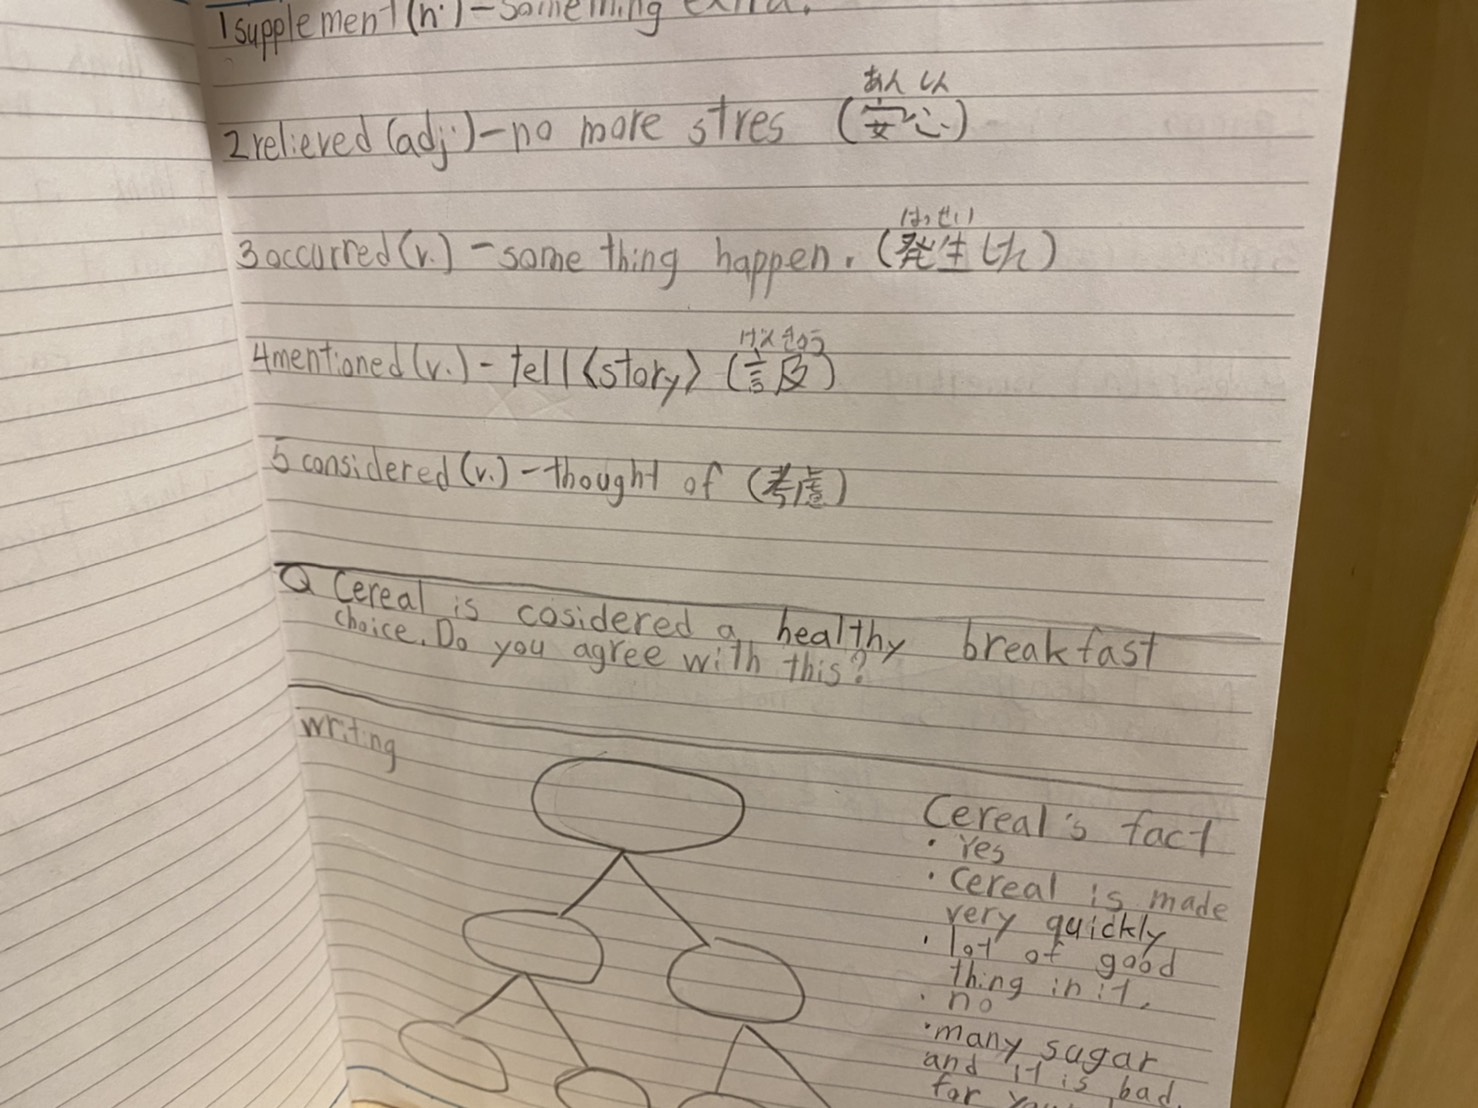 1 supplement (n.) - something extra.
あんしん
2 relieved (adj.) - no more stres (安心)
はっせい
3 occurred (v.) - some thing happen. (発生した)
げんきゅう
4 mentioned (v.) - tell <story> (言及)
5 considered (v.) - thought of (考慮)
Q Cereal is cosidered a healthy breakfast
choice. Do you agree with this?
writing
Cereal's fact
・Yes
・Cereal is made
very quickly
・lot of good
thing in it.
・no
・many sugar
and it is bad
for you